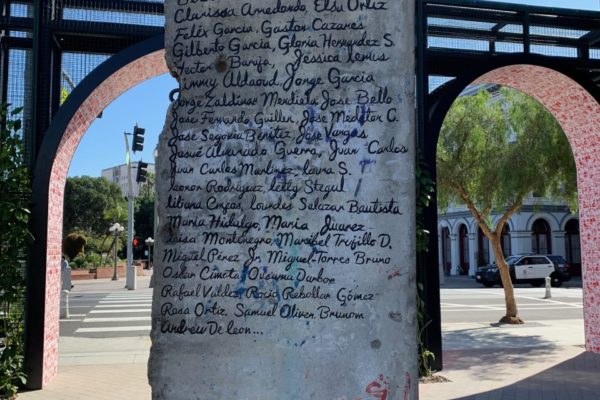 Clarissa Arredondo, Elsy Ortiz
Felix Garcia, Gaston Cazares
Gilberto Garcia, Gloria Hernandez S.
Hector Baraja, Jessica Lemus
Jimmy Aldaoud Jorge Garcia
Jorge Zaldivar Mendieta Jose Bello
Jose Fernando Guillen, Jose Medellon C.
Jose Segovia Benitez, Jose Vargas
Josue Alvarado Guerra, Juan Carlos
Juan Carlos Martinez, Laura S.
Leonor Rodriguez, Letty Stegul
Liliana Lourdes Salazar Bautista
Maria Hidalgo, Maria Juarez
Luisa Montenegro, Maribel Trujillo D.
Miguel Pérez Jr. Miguel Torres Bruno
Oskar Cimeta, Ousumu Darboe
Rafael Valdez, Rocio Rebollar Gómez
Rosa Ortiz, Samuel Oliver Brunom
Andrew De leon...